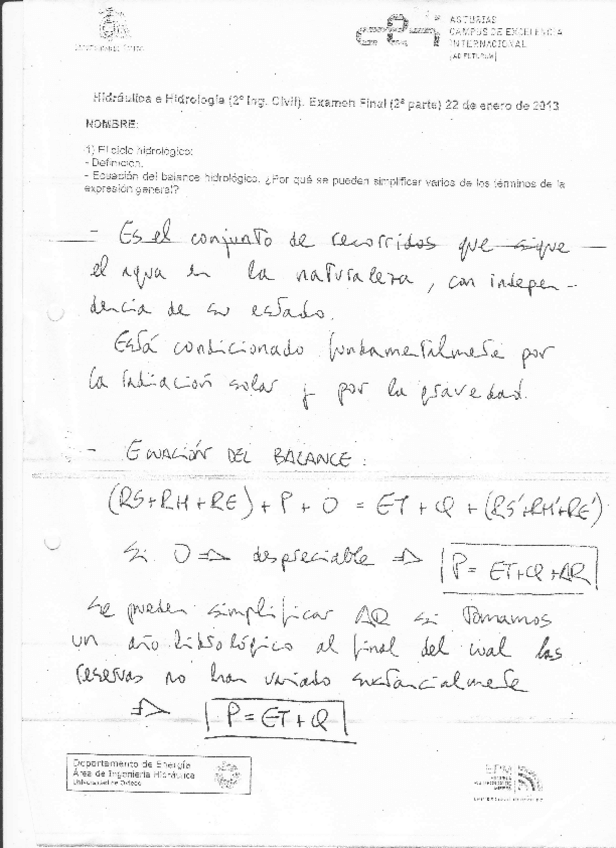 ASTURIAS
CAMPUS DE EXCELENCIA
INTERNACIONAL
AD FUTURUM
Hidráulica e Hidrología (2º Ing. Civil). Examen Final (2ª parte) 22 de enero de 2013
NOMBRE:
1) El ciclo hidrológico:
- Definición.
- Ecuación del balance hidrológico. ¿Por qué se pueden simplificar varios de los términos de la
expresión general?
- Es el conjunto de recorridos que sigue
el agua en la naturaleza, con indepen-
dencia de su estado.
Está condicionado fundamentalmente por
la radiación solar y por la gravedad.
- ECUACIÓN DEL BALANCE:
(RS+RH+RE) + P + O = ET + Q + (RS'+RH'+RE')
Si O ⇒ despreciable ⇒ P = ET+Q+ΔR
Se pueden simplificar ΔR si tomamos
un año hidrológico al final del cual las
reservas no han variado sustancialmente
⇒ P = ET+Q
Departamento de Energía
Área de Ingeniería Hidráulica
Universidad de Oviedo